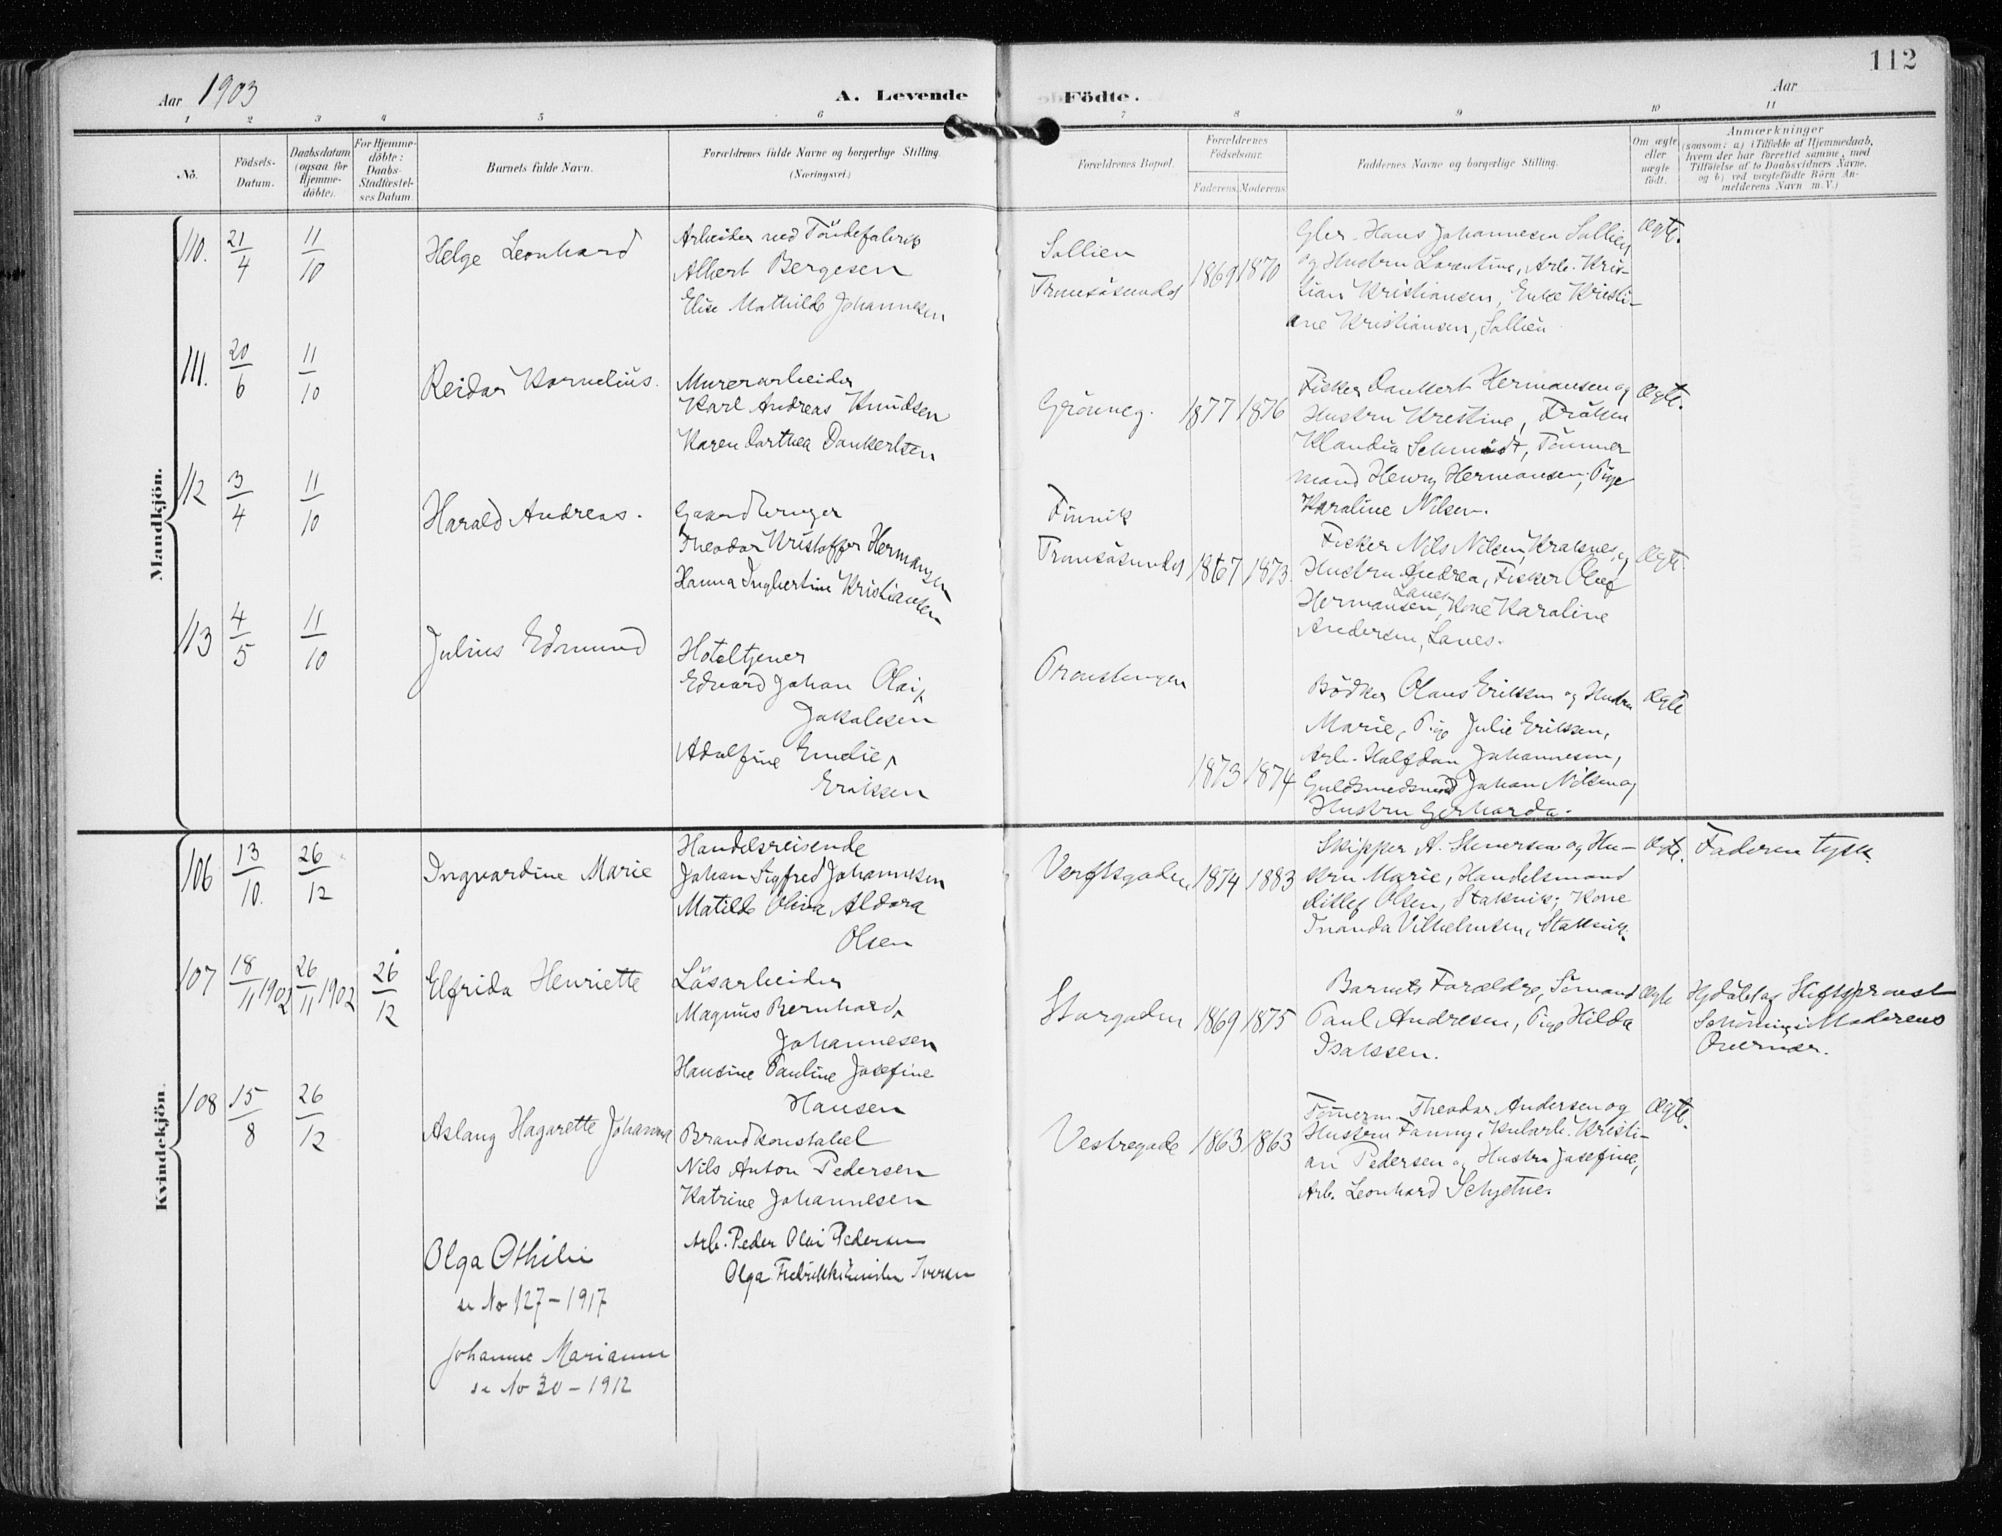 112
Aar 1903
A. Levende
Födte.
Aar
1 2 3 4 5 6 7 8 9 10 11
No.
Födsels-
Datum.
Daabsdatum
(ogsaa for
Hjemme-
döbte).
For Hjemme-
döbte:
Daabs-
Stadfæstel-
ses Datum
Barnets fulde Navn.
Forældrenes fulde Navne og borgerlige Stilling
(Næringsvei.)
Forældrenes Bopæl.
Forældrenes
Födselsaar.
Faderens. Moderens.
Faddernes Navne og borgerlige Stilling.
Om ægte
eller
uægte
födt.
Anmærkninger
(saasom: a) i Tilfælde af Hjemmedaab,
hvem der har forrettet samme, med
Tilföielse af to Daabsvidners Navne,
og b) ved uægtefödte Börn An-
melderens Navn m. V.)
Mandkjön.
110.
21/4
11/10
Helge Leonhard
Arbeider ved Töndefabrik
Albert Bergesen
Elise Mathilde Johannesen
Sollien
Tromsösundet
1869 1870
Gbr. Hans Johannesen Sollien
og Hustru Laurentine, Arb. Kris-
tian Kristiansen, Enke Kristi-
ane Kristiansen, Sollien
Ægte.
111.
20/6
11/10
Reidar Kornelius.
Murerarbeider
Karl Andreas Knudsen
Karen Dorthea Dankertsen
Grönneg.
1877 1876
Fisker Dankert Hermansen og
Hustru Kristine, Fröken
Klaudia Schmidt, Tömmer
mand Henry Hermansen, Pige
Karoline Nilsen.
Ægte.
112
3/4
11/10
Harald Andreas.
Gaardbruger
Theodor Kristoffer Hermansen
Hanna Ingbertine Kristiansen
Finvik
Tromsösundet
1867 1873
Fisker Nils Nilsen, Kraknes og
Hustru Andrea, Fisker Oluf
Hermansen, Lanes, Kone Karoline
Andersen, Lanes.
Ægte
113
4/5
11/10
Julius Edmund
Hoteltjener
Edvard Johan Olai
Jakobsen
Adolfine Emelie
Eriksen
Provstengen
1873 1874
Bödker Olaus Eriksen og Hustru
Marie, Pige Julie Eriksen,
Arb. Halfdan Johannesen,
Guldsmedsvend Johan Nilsen og
Hustru Gerharda.
Ægte
Kvindekjön.
106
13/10.
26/12
Ingvardine Marie
Handelsreisende
Johan Sigfred Johannesen
Matilde Olivia Aldora
Olsen
Verftsgaden
1874 1883
Skipper A. Stenersen og Hu-
stru Marie, Handelsmand
Ditlef Olsen, Stakvik; Kone
Inanda Vilhelmsen, Stakvik
Ægte.
Faderen tysk
107
18/11 1902
26/11 1902
26/12
Elfrida Henriette
Lösarbeider
Magnus Bernhard
Johannesen
Hansine Pauline Josefine
Hansen
Storgaden
1869 1875
Barnets Forældre, Sömand
Paul Andresen, Pige Hilda
Isaksen.
Ægte
Hjdöbt af Stiftsprovst
Schönning i Moderens
Overvær.
108
15/8
26/12
Aslaug Hagarette Johanna
Brandkonstabel
Nils Anton Pedersen
Katrine Johannesen
Vestregade
1863 1863
Tömerm. Theodor Andersen og
Hustru Fanny, Kularb. Kristi-
an Pedersen og Hustru Josefine,
Arb. Leonhard Schjetne.
Ægte.
Olga Othilie
se No 127 - 1917
Arb. Peder Olai Pedersen
Olga Iversen
Johanne Marianne
se No 30 - 1912